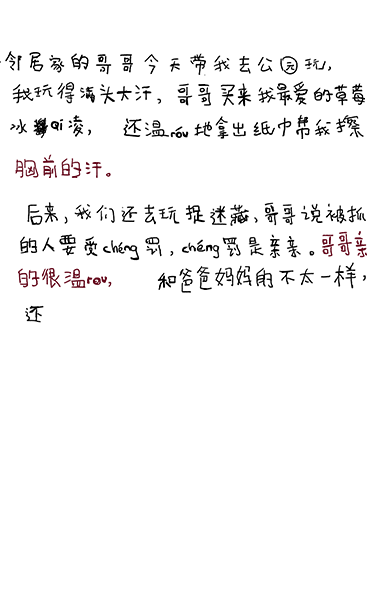 邻居家的哥哥今天带我去公园玩，
我玩得满头大汗，哥哥买来我最爱的草莓
冰qi凌，还温róu地拿出纸巾帮我擦
胸前的汗。
后来，我们还去玩捉迷藏，哥哥说被抓
的人要受chéng罚，chéng罚是亲亲。哥哥亲
的很温rou，和爸爸妈妈的不太一样，
还